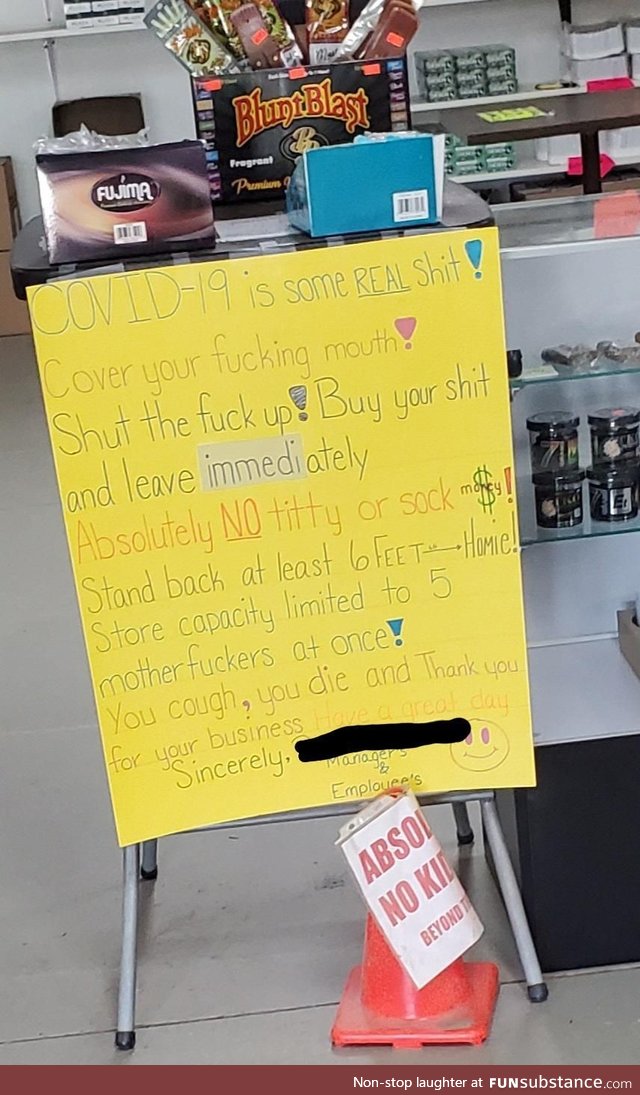 BluntBlast
Fragrant
Premium
FUJIMA
COVID-19 is some REAL shit!
Cover your fucking mouth!
Shut the fuck up! Buy your shit
and leave immediately
Absolutely NO titty or sock money $!
Stand back at least 6 FEET Homie!
Store capacity limited to 5
motherfuckers at once!
You cough, you die and Thank you
for your business Have a great day
Sincerely,
Manager's
&
Employee's
ABSOL
NO KID
BEYOND T
Non-stop laughter at FUNsubstance.com